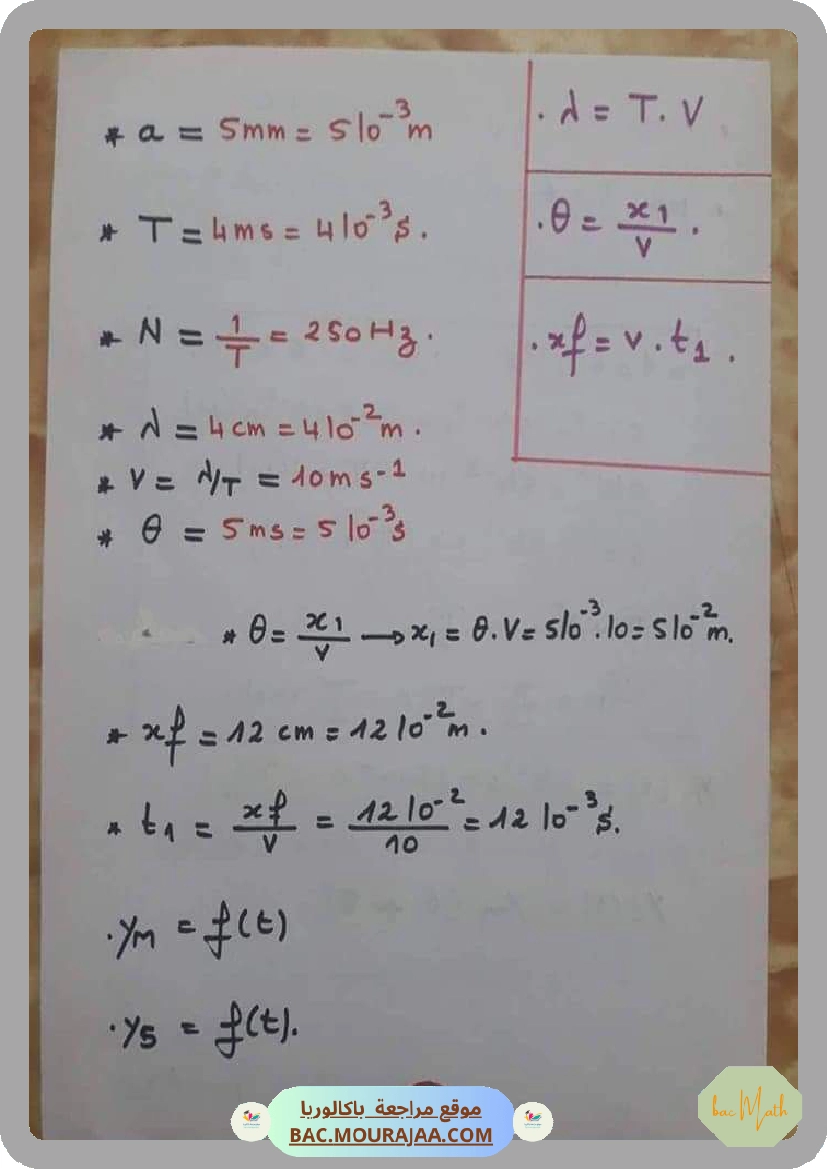 * a = 5mm = 5 10⁻³m
* T = 4ms = 4 10⁻³s.
* N = 1/T = 250Hz.
* λ = 4cm = 4 10⁻²m.
* V = λ/T = 10ms-1
* θ = 5ms = 5 10⁻³s
. λ = T. V
. θ = x1/V .
. xf = v . t1 .
* θ = x1/V → x1 = θ.V = 5 10⁻³.10 = 5 10⁻²m.
* xf = 12 cm = 12 10⁻²m.
* t1 = xf/V = 12 10⁻²/10 = 12 10⁻³s.
. yM = f(t)
. yS = f(t).
موقع مراجعة باكالوريا
BAC.MOURAJAA.COM
bac Math